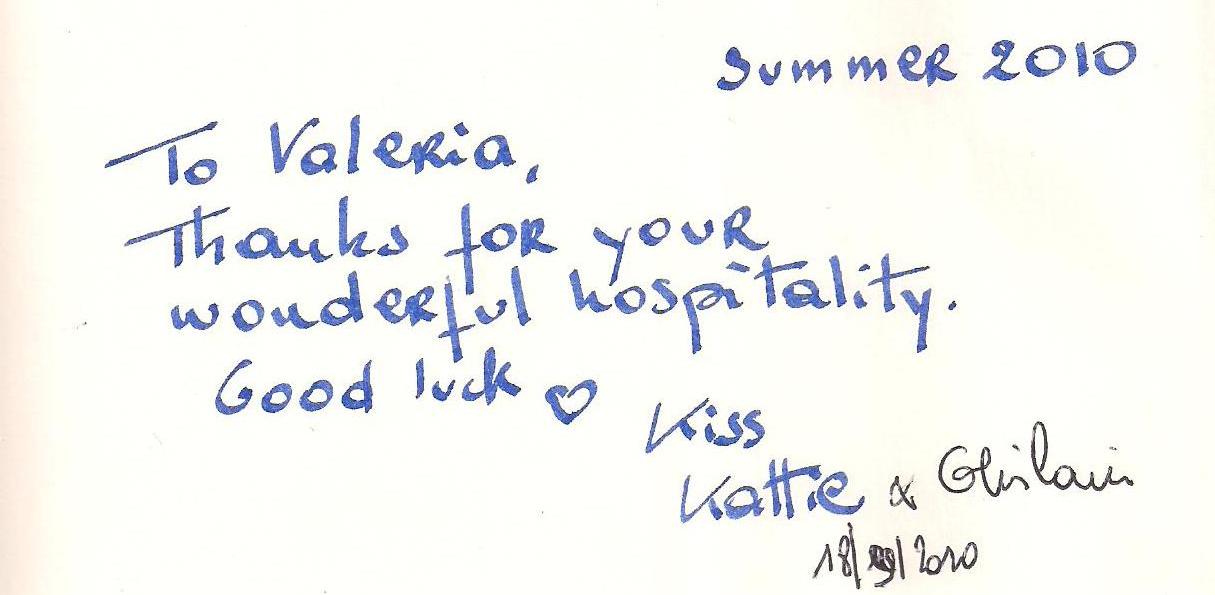 Summer 2010
To Valeria,
Thanks for your
wonderful hospitality.
Good luck ♡
Kiss
Kattie & Ghislain
18/ /2010